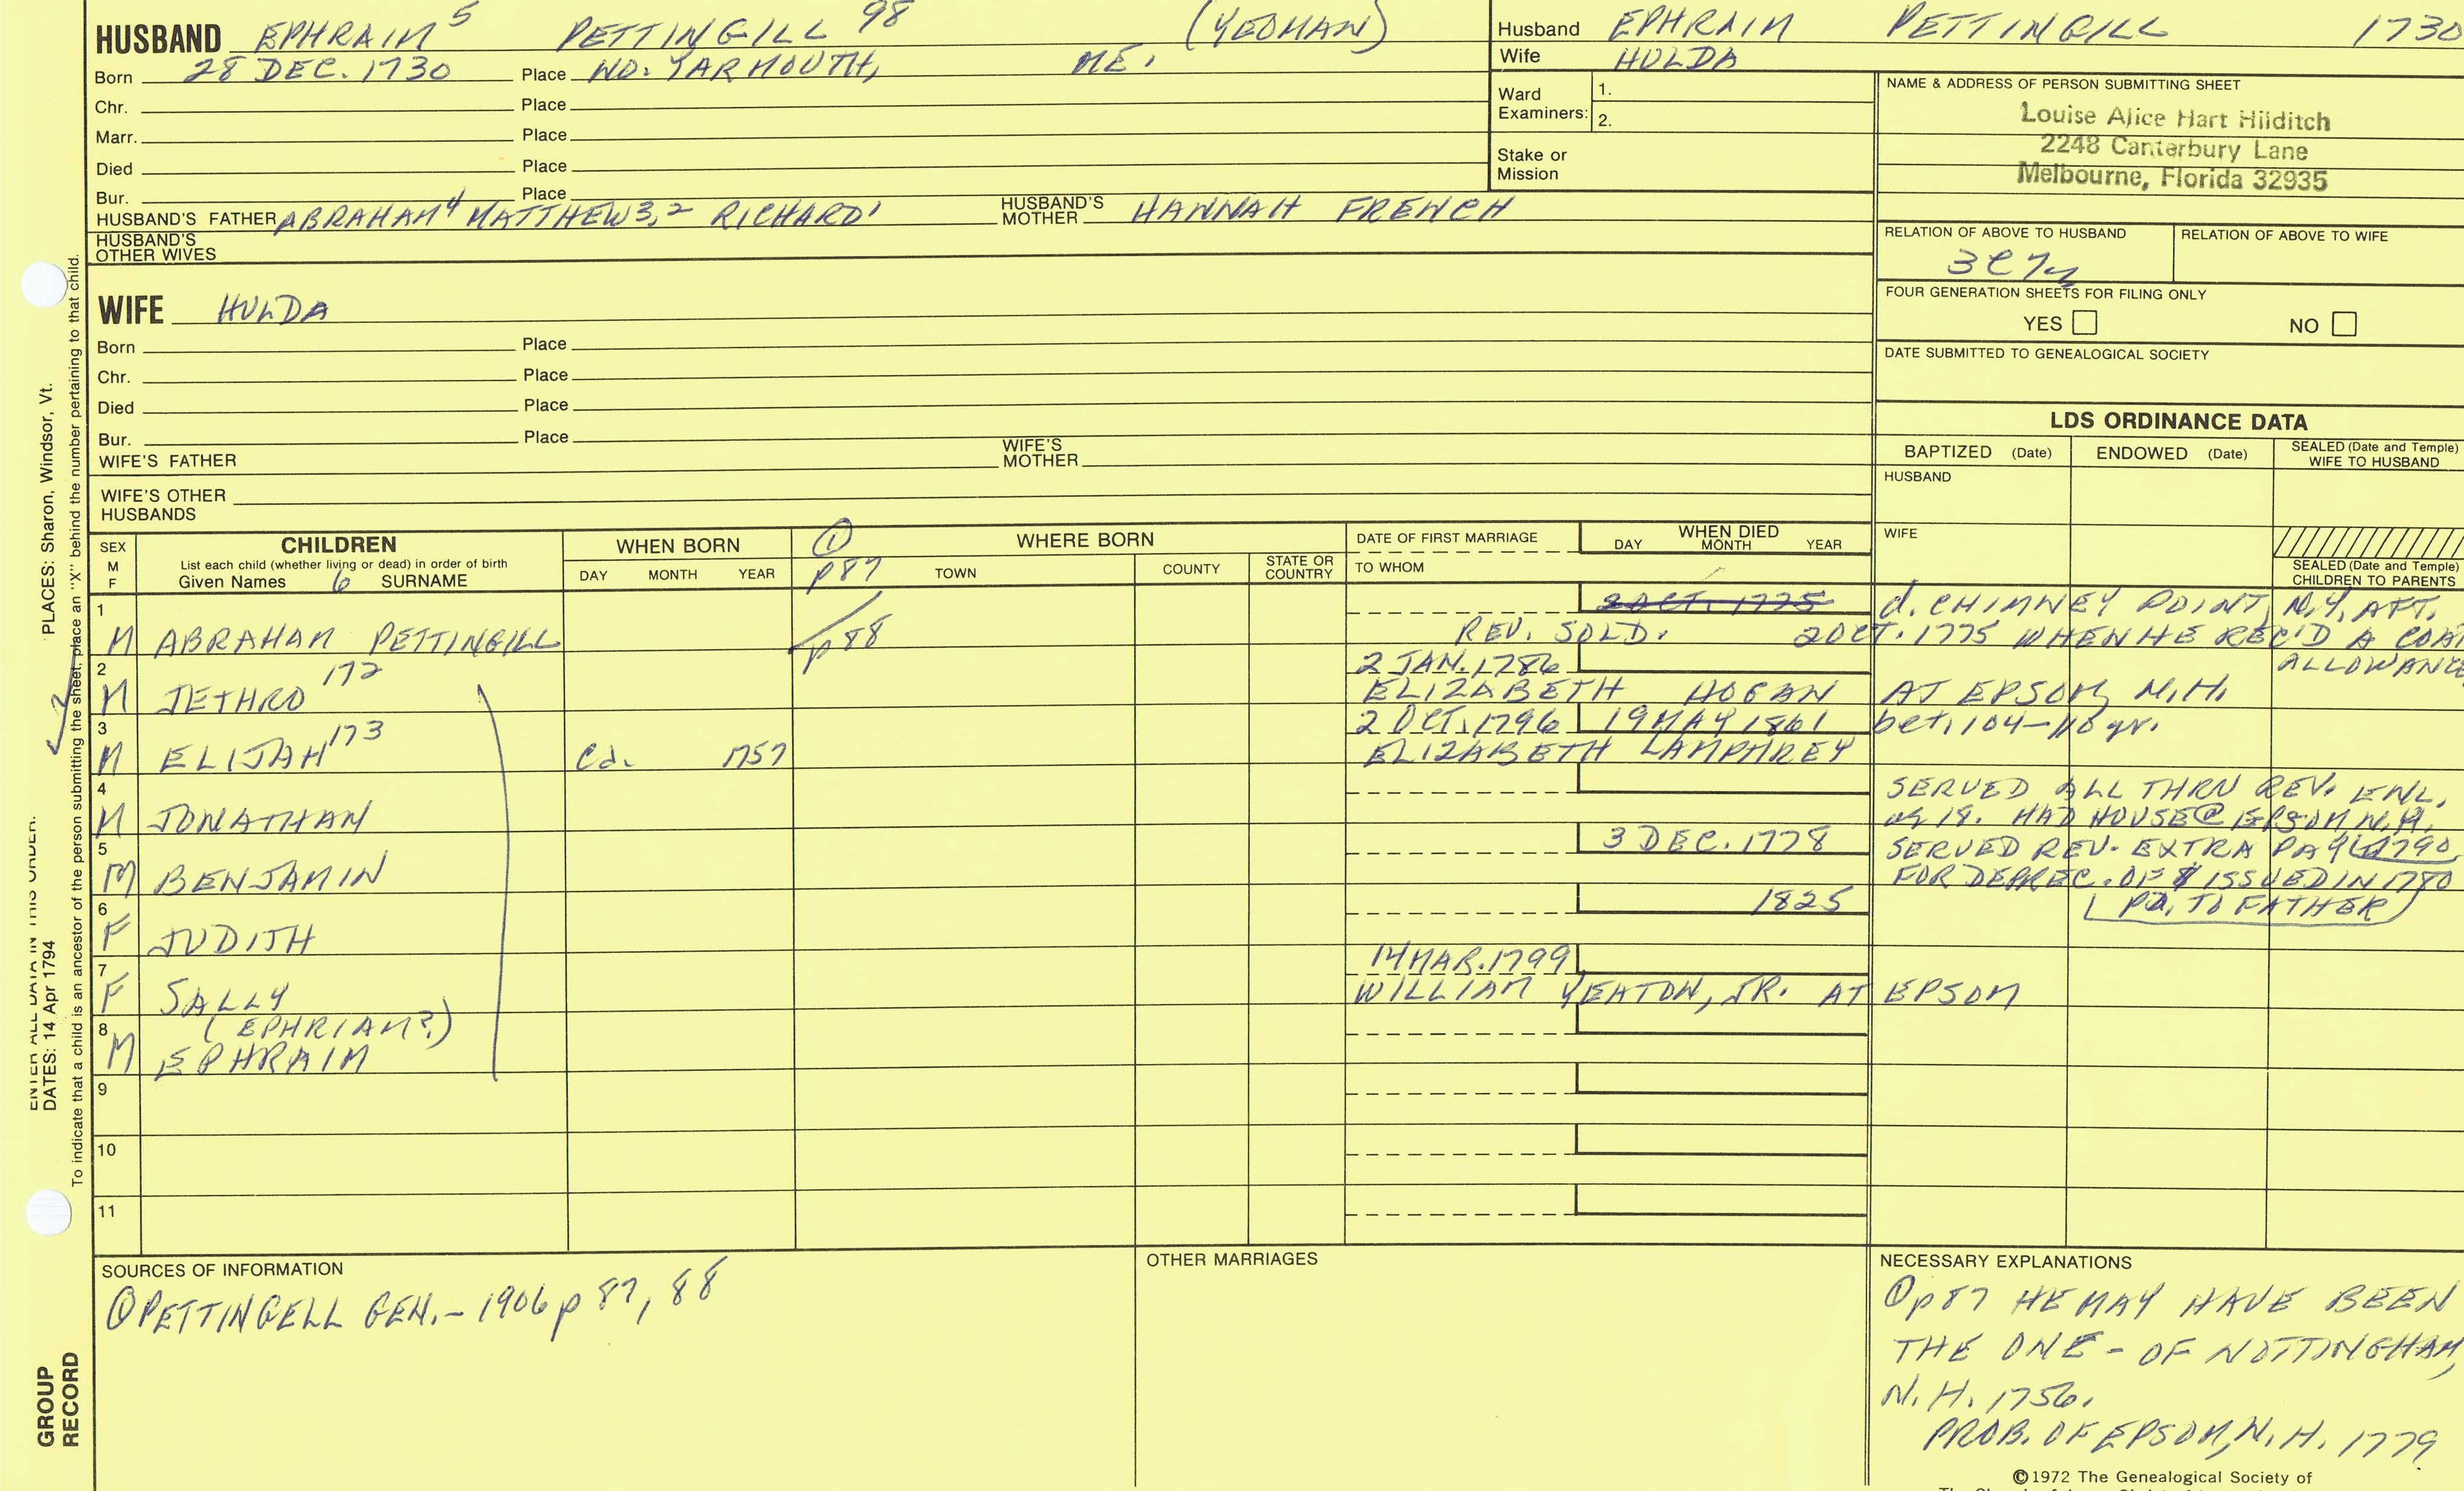 HUSBAND EPHRAIM5 PETTINGILL 98 (YEOMAN)
Born 28 DEC. 1730 Place NO. YARMOUTH, ME.
Chr. Place
Marr. Place
Died Place
Bur. Place
HUSBAND'S FATHER ABRAHAM4 MATTHEW3,2 RICHARD1 HUSBAND'S MOTHER HANNAH FRENCH
HUSBAND'S OTHER WIVES
WIFE HULDA
Born Place
Chr. Place
Died Place
Bur. Place
WIFE'S FATHER WIFE'S MOTHER
WIFE'S OTHER HUSBANDS
Husband EPHRAIM PETTINGILL 1730
Wife HULDA
Ward Examiners: 1.
2.
Stake or Mission
NAME & ADDRESS OF PERSON SUBMITTING SHEET
Louise Alice Hart Hilditch
2248 Canterbury Lane
Melbourne, Florida 32935
RELATION OF ABOVE TO HUSBAND RELATION OF ABOVE TO WIFE
FOUR GENERATION SHEETS FOR FILING ONLY
YES NO
DATE SUBMITTED TO GENEALOGICAL SOCIETY
LDS ORDINANCE DATA
BAPTIZED (Date) ENDOWED (Date) SEALED (Date and Temple) WIFE TO HUSBAND
HUSBAND
WIFE
SEALED (Date and Temple) CHILDREN TO PARENTS
SEX M F
CHILDREN
List each child (whether living or dead) in order of birth
Given Names 6 SURNAME
WHEN BORN
DAY MONTH YEAR
① p87
WHERE BORN
TOWN COUNTY STATE OR COUNTRY
DATE OF FIRST MARRIAGE
TO WHOM
WHEN DIED
DAY MONTH YEAR
1 2 OCT. 1775 d. CHIMNEY POINT, N.Y. AFT.
M ABRAHAM PETTINGILL p88 REV. SOLD. 2 OCT. 1775 WHEN HE REC'D A COAT
ALLOWANCE
2 172 2 JAN. 1786
M JETHRO ELIZABETH HOGAN AT EPSOM, N.H.
3 173 2 OCT. 1796 19 MAY 1861 bet. 104-110 yr.
M ELIJAH Ca. 1757 ELIZABETH LAMPHREY
4 SERVED ALL THRU REV. ENL.
M JONATHAN ag 18. HAD HOUSE @ EPSOM N.H.
5 3 DEC. 1778 SERVED REV. EXTRA PAY 1790
M BENJAMIN FOR DEPREC. OF $ ISSUED IN 1780
6 1825 PD. TO FATHER
F JUDITH
7 14 MAR. 1799
F SALLY WILLIAM YEATON, JR. AT EPSOM
8 (EPHRIAM?)
M EPHRAIM
9
10
11
SOURCES OF INFORMATION
① PETTINGELL GEN. - 1906 p 87, 88
OTHER MARRIAGES
NECESSARY EXPLANATIONS
① p87 HE MAY HAVE BEEN
THE ONE - OF NOTTINGHAM,
N.H. 1756.
PROB. OF EPSOM, N.H. 1779
©1972 The Genealogical Society of
PLACES: Sharon, Windsor, Vt.
To indicate that a child is an ancestor of the person submitting the sheet, place an "X" behind the number pertaining to that child.
ENTER ALL DATA IN THIS ORDER:
DATES: 14 Apr 1794
GROUP RECORD